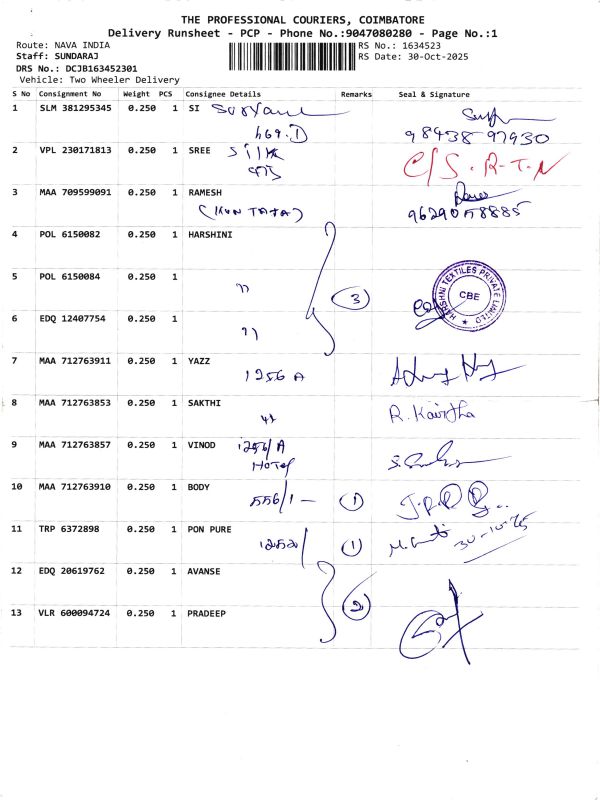 THE PROFESSIONAL COURIERS, COIMBATORE
Delivery Runsheet - PCP - Phone No.:9047080280 - Page No.:1
Route: NAVA INDIA
RS No.: 1634523
Staff: SUNDARAJ
RS Date: 30-Oct-2025
DRS No.: DCJB163452301
Vehicle: Two Wheeler Delivery
S No Consignment No Weight PCS Consignee Details Remarks Seal & Signature
1 SLM 381295345 0.250 1 SI
98438 97930
2 VPL 230171813 0.250 1 SREE Silk
C/S.R.T.N
3 MAA 709599091 0.250 1 RAMESH
4 POL 6150082 0.250 1 HARSHINI
5 POL 6150084 0.250 1
" 3
HARSHNI TEXTILES PRIVATE LIMITED
CBE
6 EDQ 12407754 0.250 1
"
7 MAA 712763911 0.250 1 YAZZ
1256 A
8 MAA 712763853 0.250 1 SAKTHI
R. Kavitha
9 MAA 712763857 0.250 1 VINOD 1256/A
Hotel
10 MAA 712763910 0.250 1 BODY
556/1 - 1
11 TRP 6372898 0.250 1 PON PURE
1 30-10-25
12 EDQ 20619762 0.250 1 AVANSE
2
13 VLR 600094724 0.250 1 PRADEEP